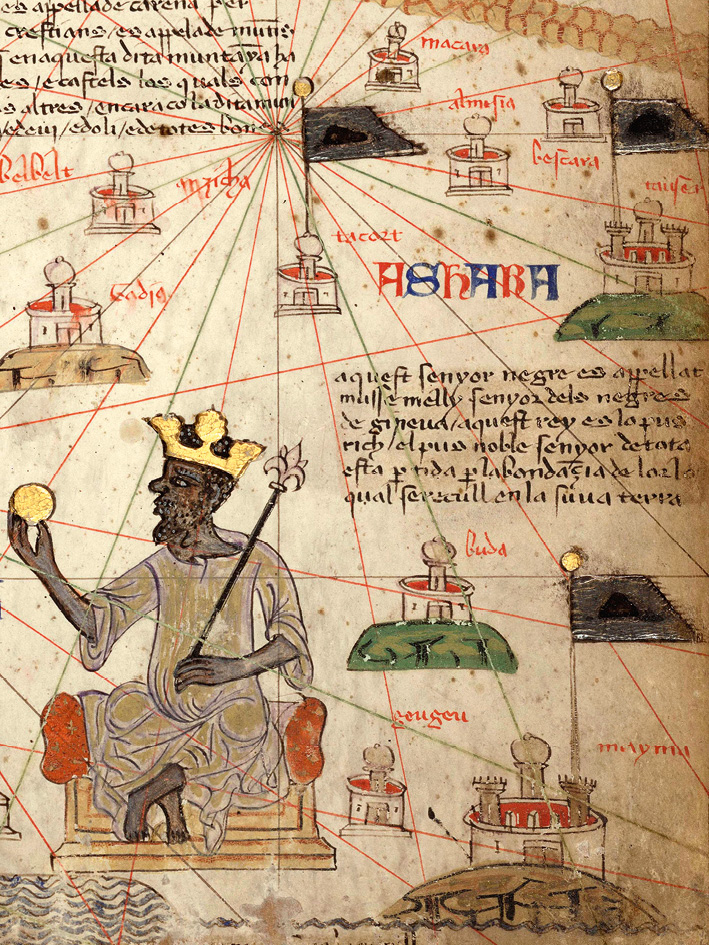 es appellade carena per
crestians / es appelade munts
en aquesta dita muntaya ha
es / e castels los quals con
s altres / encara co la dita mun
e de vi / e doli / e de totes bones
macara
almesia
bescara
belbelt
tacort
ASHARA
aquest senyor negre es appellat
musse melly senyor dels negres
de gineua / aquest rey es lo pus
rich / el pus noble senyor de tota
esta ptida p labondāzia de lor lo
qual se recull en la suua terra
buda
geugeu
mayma